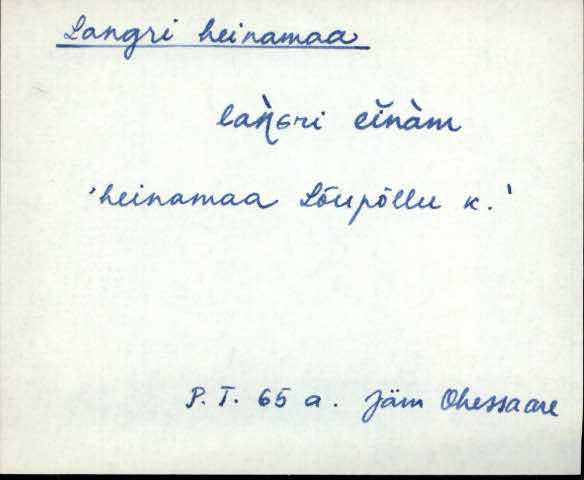 Langri heinamaa
laǹɢri eĭnàm
'heinamaa Lõupõllu k.'
P. T. 65 a. Jäm Ohessaare